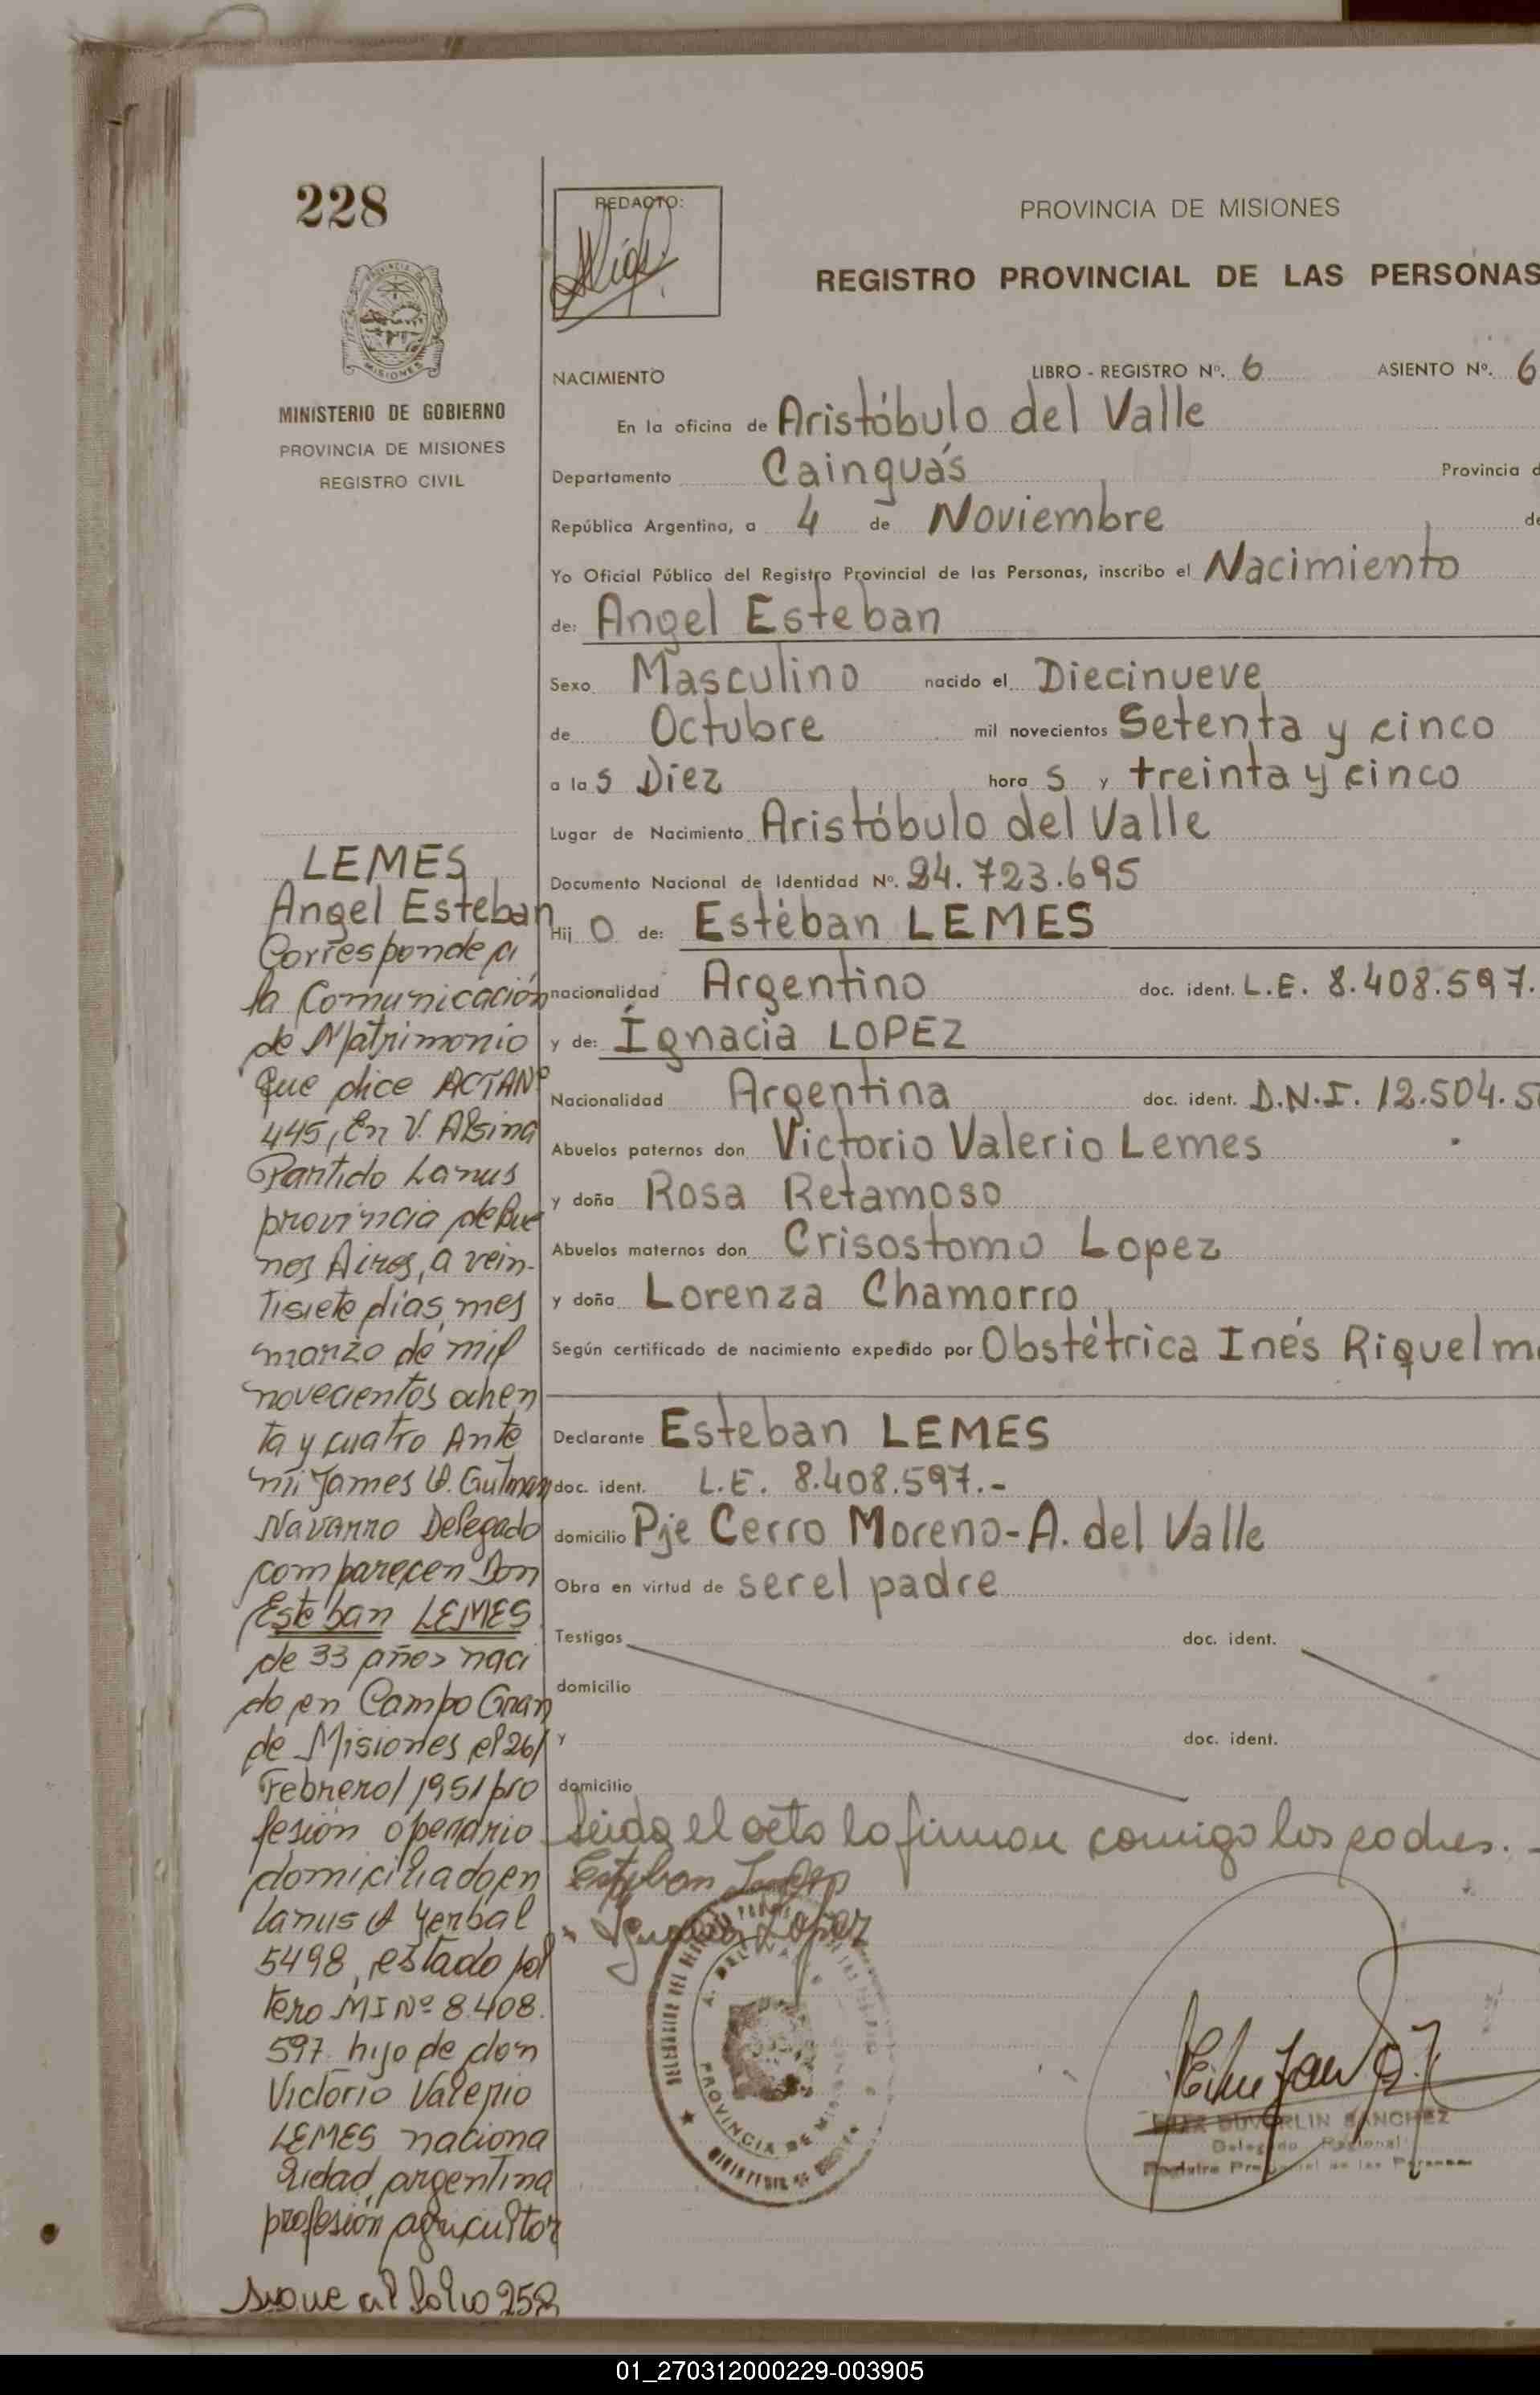 228
REDACTO:
PROVINCIA DE MISIONES
REGISTRO PROVINCIAL DE LAS PERSONAS
MISIONES
MINISTERIO DE GOBIERNO
PROVINCIA DE MISIONES
REGISTRO CIVIL
NACIMIENTO LIBRO - REGISTRO Nº. 6 ASIENTO Nº. 6
En la oficina de Aristóbulo del Valle
Departamento Cainguás Provincia d
República Argentina, a 4 de Noviembre de
Yo Oficial Público del Registro Provincial de las Personas, inscribo el Nacimiento
de: Angel Esteban
Sexo Masculino nacido el Diecinueve
de Octubre mil novecientos Setenta y cinco
a las Diez hora s y treinta y cinco
Lugar de Nacimiento Aristóbulo del Valle
Documento Nacional de Identidad Nº. 24.723.695
Hij o de: Estéban LEMES
nacionalidad Argentino doc. ident. L.E. 8.408.597.
y de: Ígnacia LOPEZ
Nacionalidad Argentina doc. ident. D.N.I. 12.504.5
Abuelos paternos don Victorio Valerio Lemes
y doña Rosa Retamoso
Abuelos maternos don Crisostomo Lopez
y doña Lorenza Chamorro
Según certificado de nacimiento expedido por Obstétrica Inés Riquelm
Declarante Esteban LEMES
doc. ident. L.E. 8.408.597.-
domicilio Pje Cerro Moreno-A. del Valle
Obra en virtud de ser el padre
Testigos doc. ident.
domicilio
y doc. ident.
domicilio
Leida el acta la firman conmigo los padres.
Esteban Lemes
Ignacia Lopez
A. DEL
PROVINCIA DE MISIONES
DUVERLIN SANCHEZ
Delegado Regional
Registro Provincial de las Personas
LEMES
Angel Esteban
Corresponde a
la Comunicación
de Matrimonio
que dice ACTA Nº
445, En V. Alsina
Partido Lanus
provincia de Bue
nos Aires, a vein-
tisiete días, mes
marzo de mil
novecientos ochen
ta y cuatro Ante
mi James W. Gutman
Navarro Delegado
comparecen Don
Esteban LEMES
de 33 años naci
do en Campo Gran
de Misiones el 26/
Febrero/1951 pro
fesión operario
domiciliado en
Lanus A Yerbal
5498, estado sol
tero MI Nº 8.408.
597 hijo de don
Victorio Valerio
LEMES naciona
lidad argentina
profesión agricultor
sigue al folio 258
01_270312000229-003905